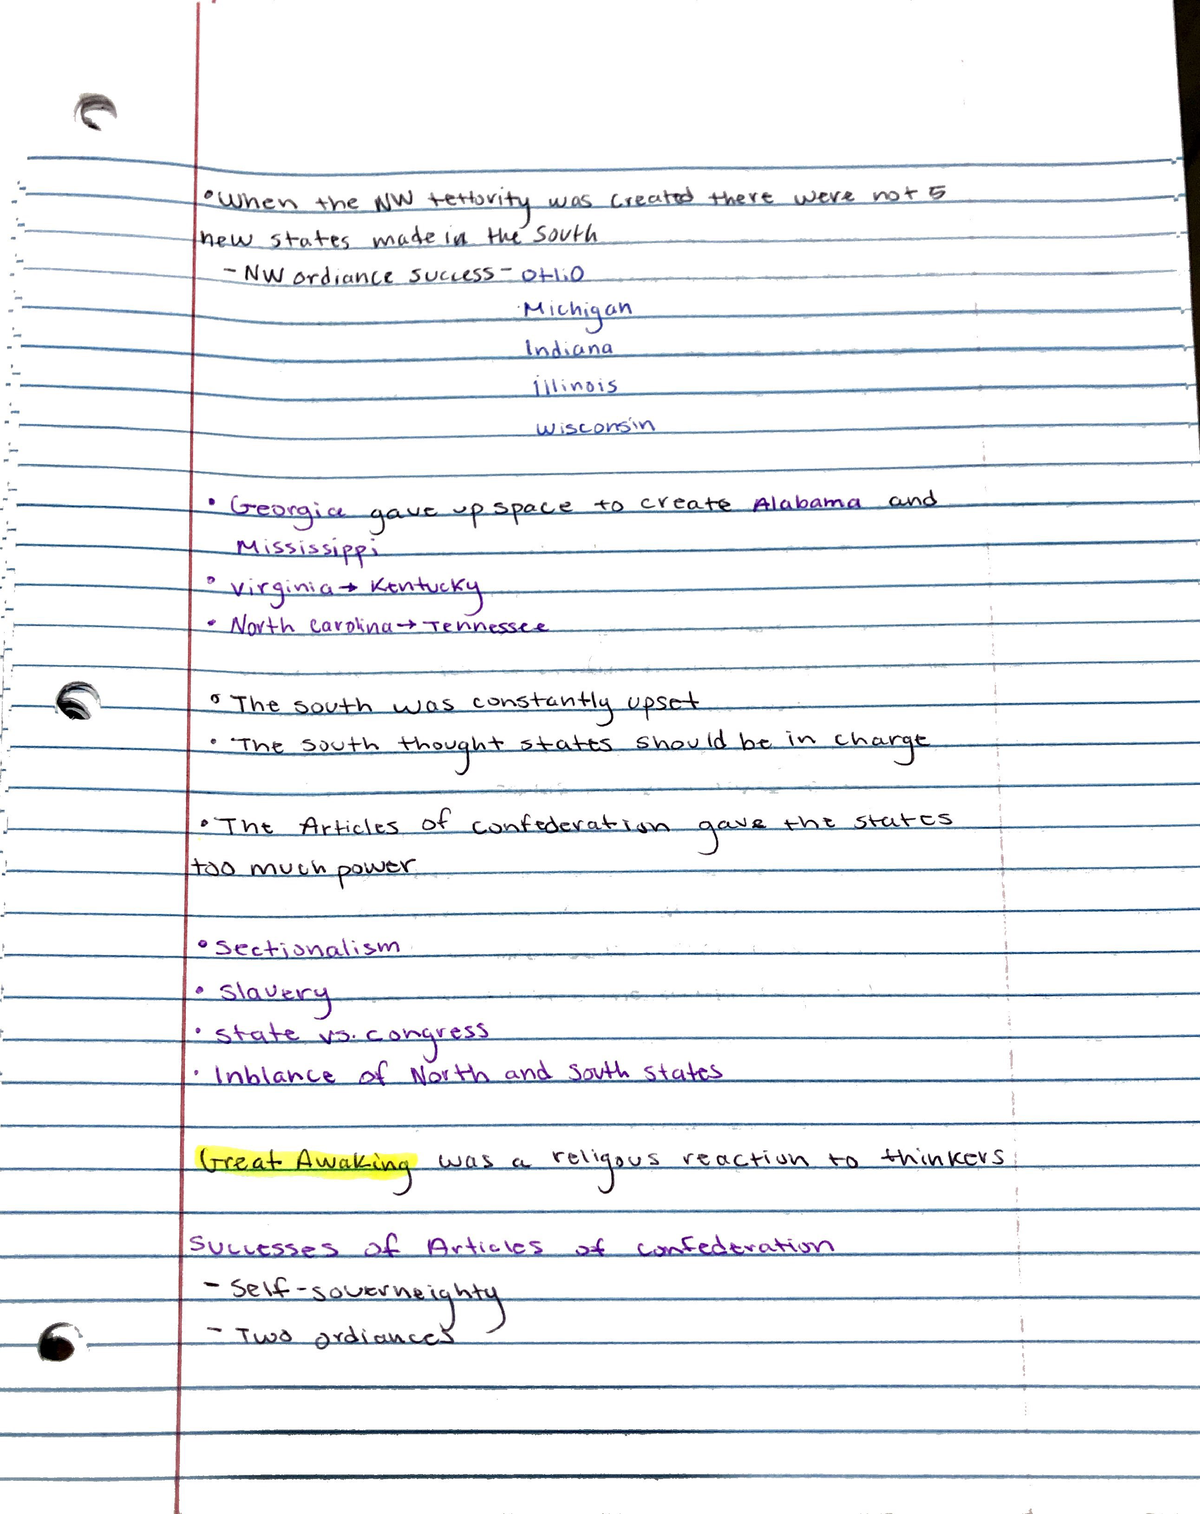 • When the NW tettority was created there were not 5
new states made in the south
- NW ordiance success - OHIO
Michigan
Indiana
illinois
Wisconsin
• Georgia gave up space to create Alabama and
Mississippi
• Virginia → Kentucky
• North Carolina → Tennessee
• The south was constantly upset
• The south thought states should be in charge
• The Articles of confederation gave the states
too much power
• Sectionalism
• Slavery
• State vs. congress
• Inblance of North and South states
Great Awaking was a religous reaction to thinkers
Successes of Articles of confederation
- Self-soverneighty
- Two ordiances